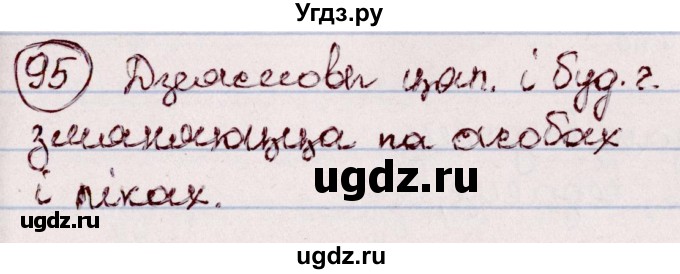 Угдз.ру
95 Дзеясловы цяп. і буд. г.
змяняюцца па асобах
ugdz.ru
і ліках.
ugdz.ru
ugdz.ru
ugdz.ru